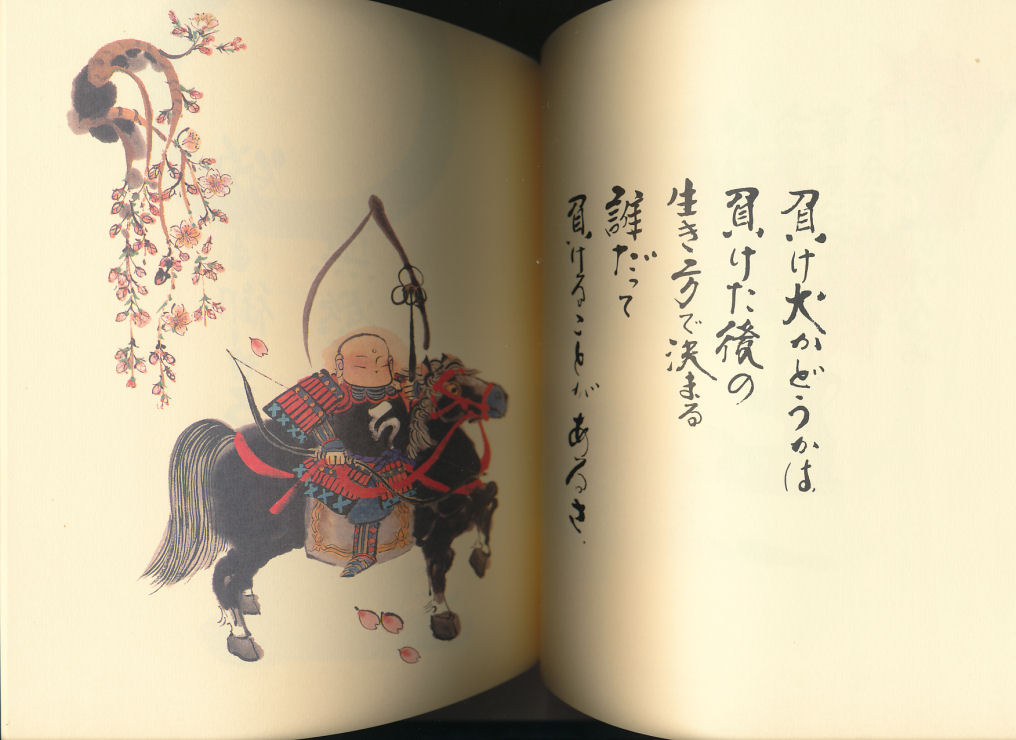 負け犬かどうかは
負けた後の
生き方で決まる
誰だって
負けることがあるさ